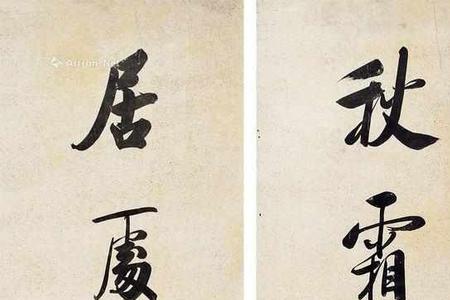 秋霜
居處
Artron.Net